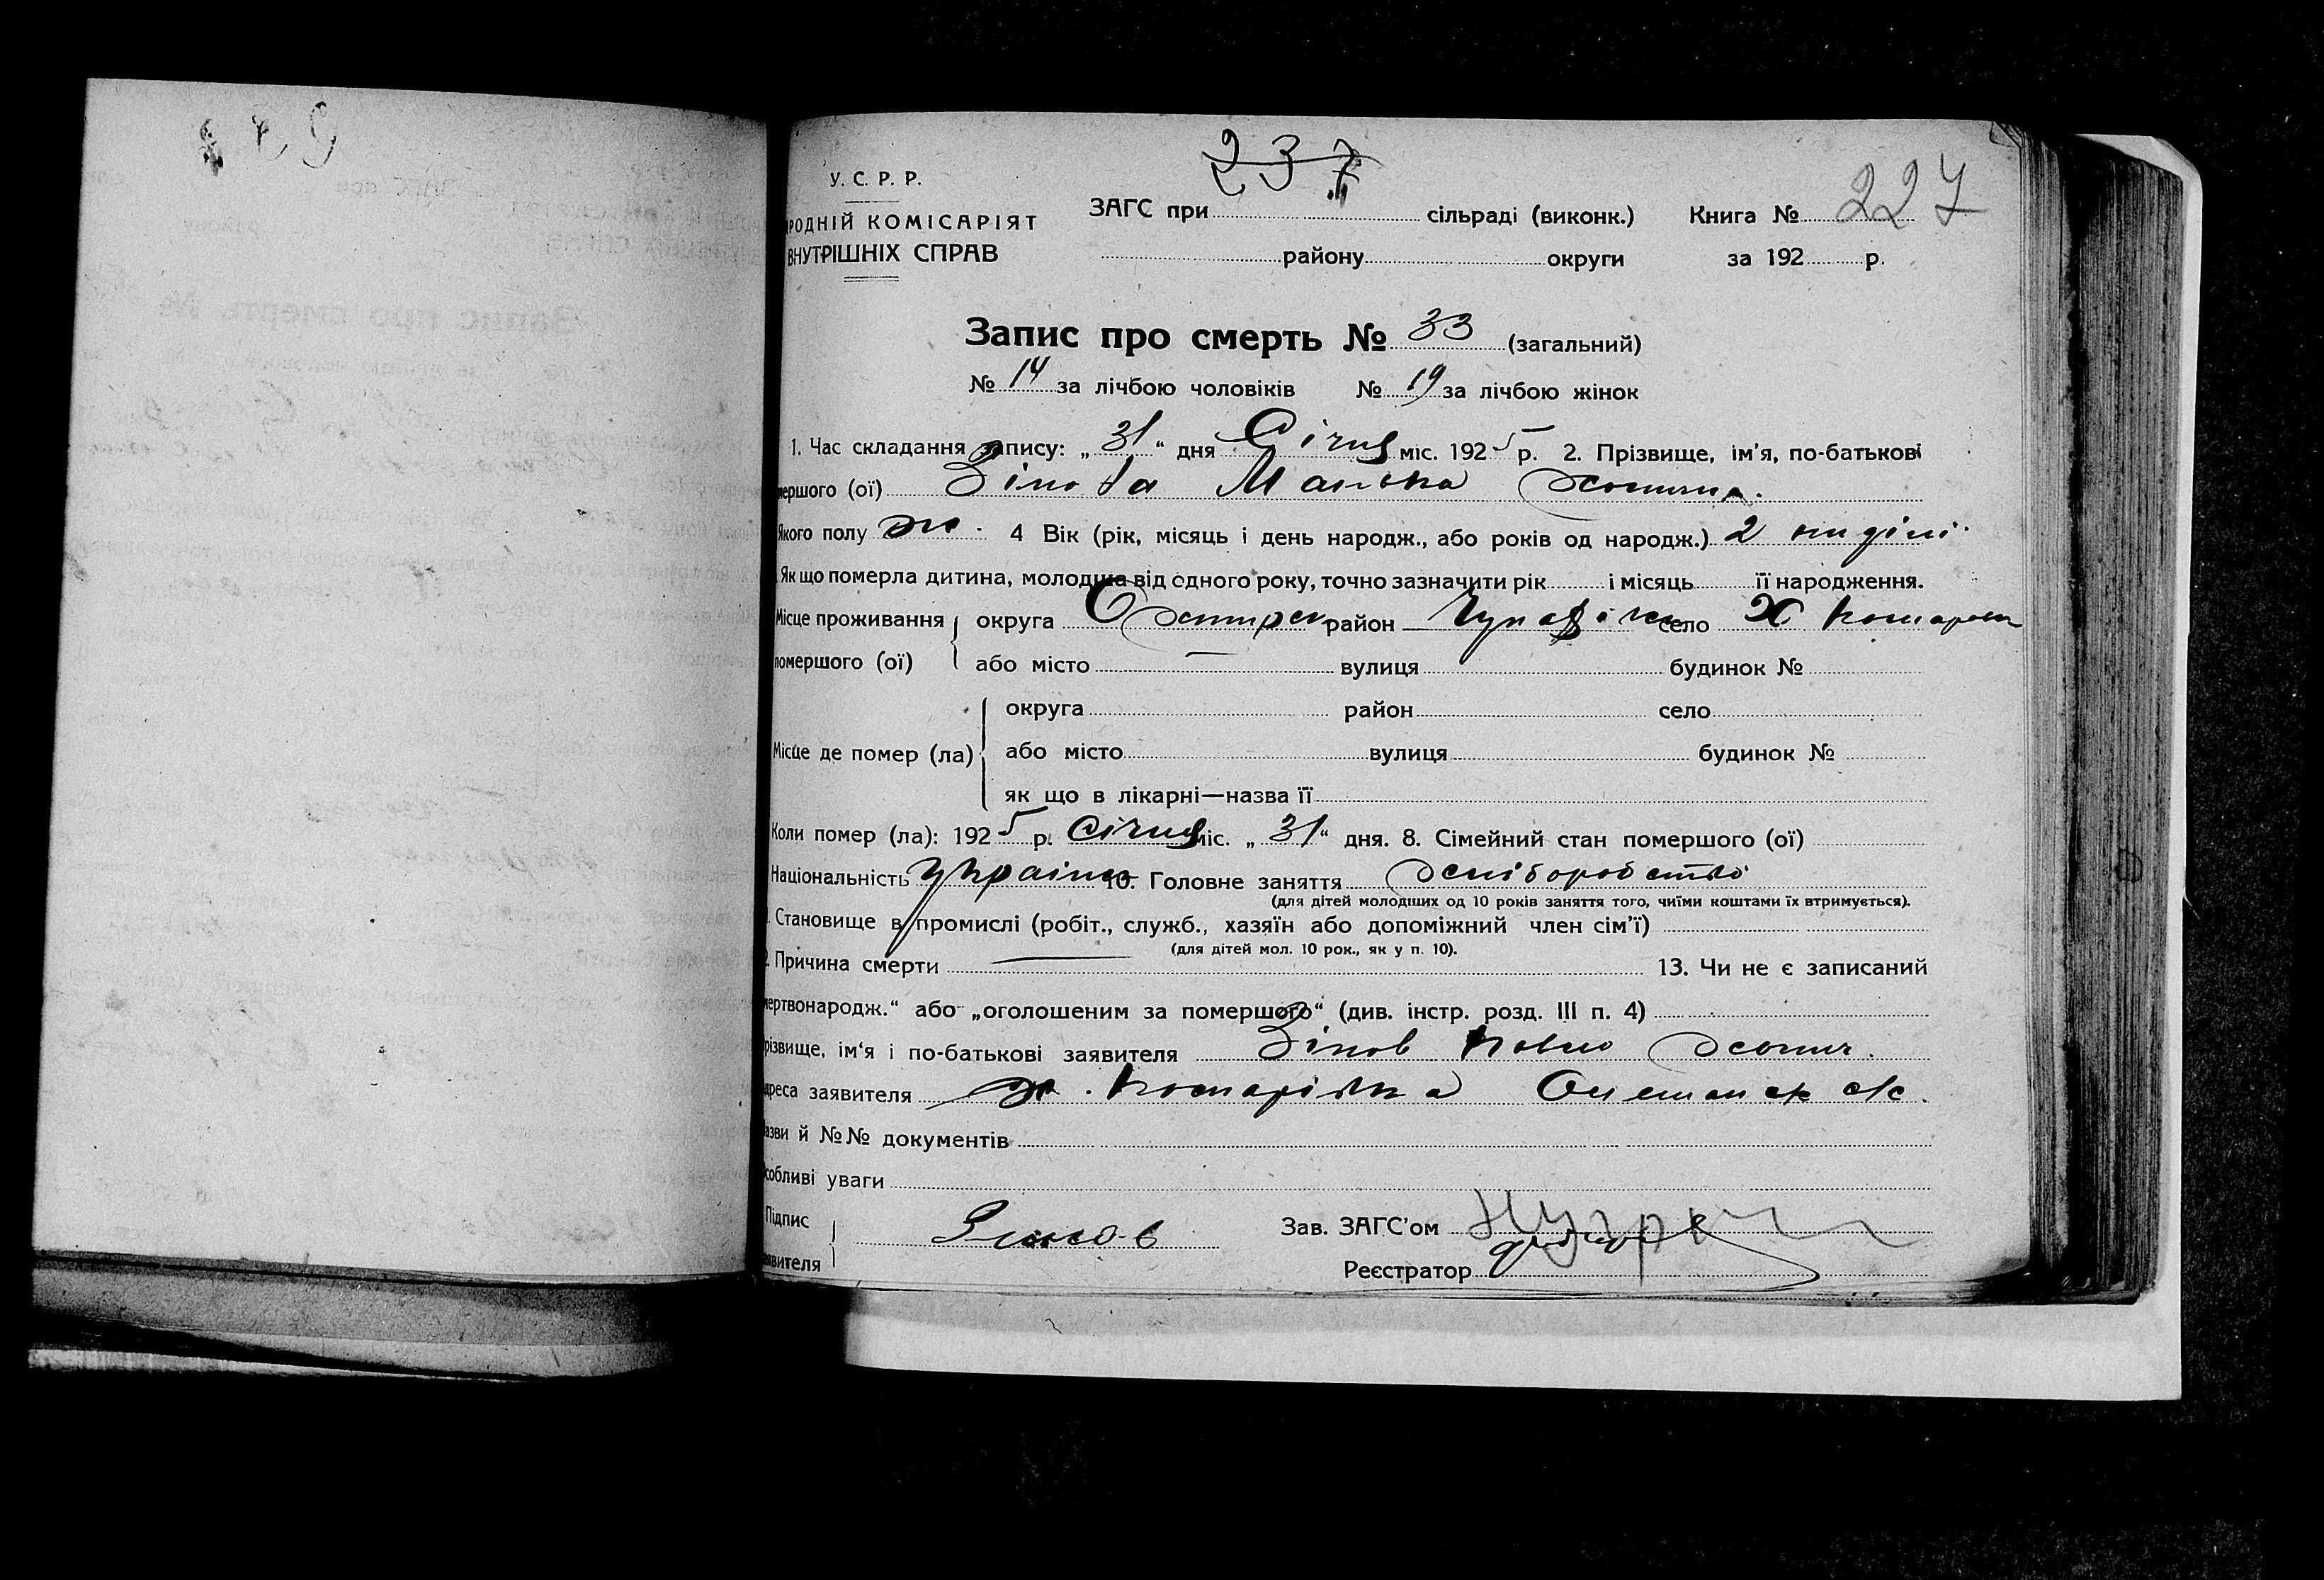 237
У. С. Р. Р.
РОДНІЙ КОМІСАРІЯТ
ВНУТРІШНІХ СПРАВ
ЗАГС при сільраді (виконк.) Книга № 227
району округи за 192 р.
Запис про смерть № 33 (загальний)
№ 14 за лічбою чоловіків № 19 за лічбою жінок
1. Час складання запису: „ 31 “ дня Січня міс. 192 5 р. 2. Прізвище, ім'я, по-батькові
мершого (ої) Зінова
Якого полу ж. 4 Вік (рік, місяць і день народж., або років од народж.) 2 ниділі
Як що померла дитина, молодша від одного року, точно зазначити рік і місяць її народження.
Місце проживання округа район село Х
помершого (ої) або місто — вулиця будинок №
округа район село
Місце де помер (ла) або місто вулиця будинок №
як що в лікарні—назва її
Коли помер (ла): 192 5 р. Січня міс. „ 31 “ дня. 8. Сімейний стан помершого (ої)
Національність Україн 10. Головне заняття
(для дітей молодших од 10 років заняття того, чиїми коштами їх втримується).
. Становище в промислі (робіт., служб., хазяїн або допоміжний член сім'ї)
(для дітей мол. 10 рок., як у п. 10).
2. Причина смерти — 13. Чи не є записаний
мертвонародж.“ або „оголошеним за помершого“ (див. інстр. розд. III п. 4)
різвище, ім'я і по-батькові заявителя Зінов
дреса заявителя х. Комарівка
азви й №№ документів
собливі уваги
Підпис
явителя Зинов Зав. ЗАГС'ом
Реєстратор